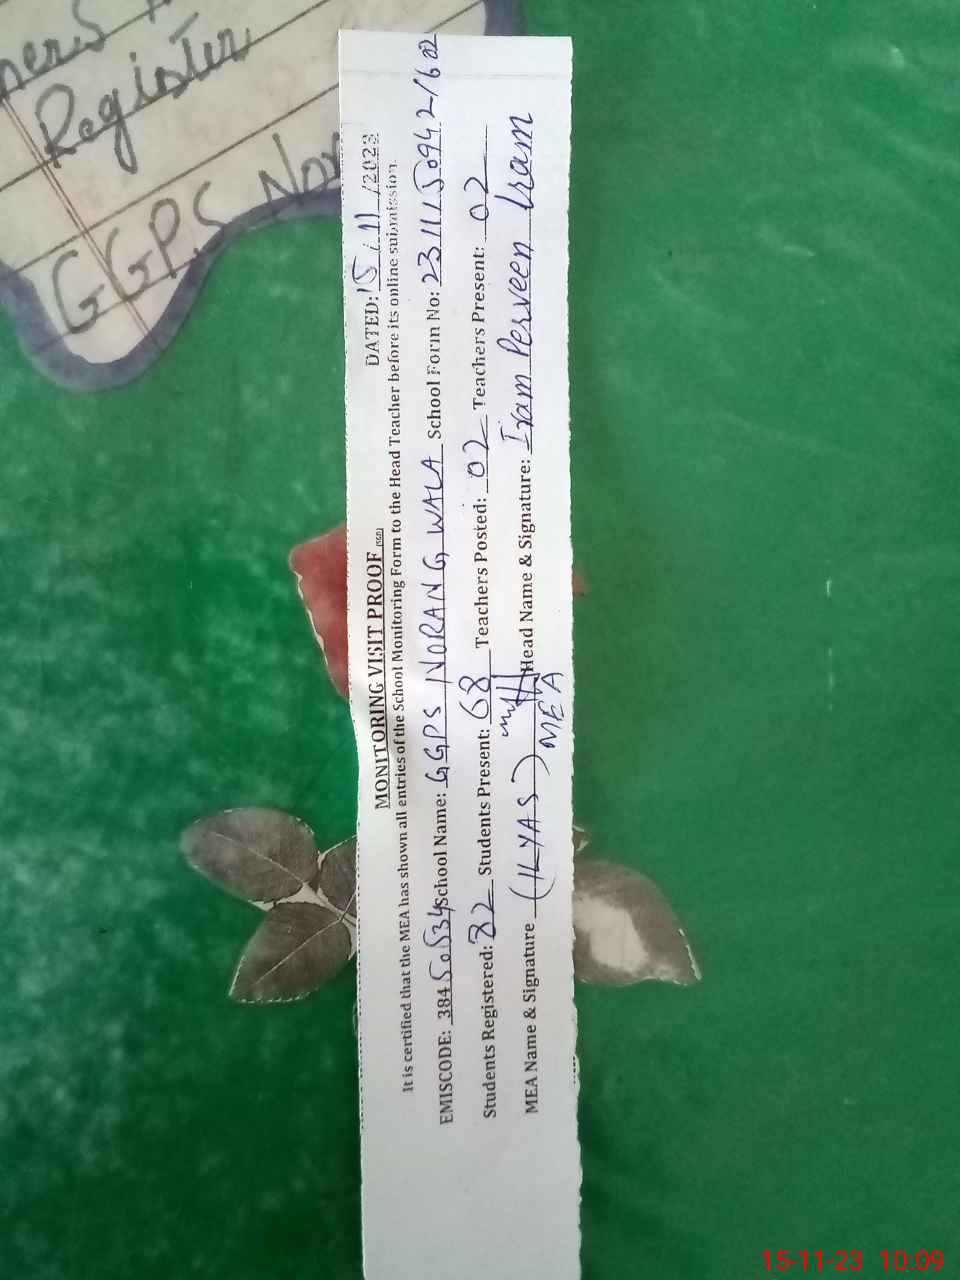 Register
GGPS Nor
MONITORING VISIT PROOF
DATED: 15/11/2023
It is certified that the MEA has shown all entries of the School Monitoring Form to the Head Teacher before its online submission.
EMISCODE: 38450534 School Name: GGPS NORANG WALA School Form No: 23111509421602
Students Registered: 82 Students Present: 68 Teachers Posted: 02 Teachers Present: 02
MEA Name & Signature (ILYAS) Head Name & Signature: Iram Perveen Iram
MEA
15-11-23 10:09